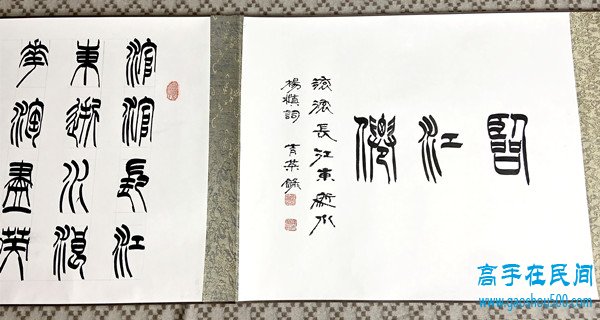 臨江僊
滚滚長江東逝水
楊慎詞
涫涫長江
東逝水浪
華淘盡英
高手在民间
www.gaoshou500.com